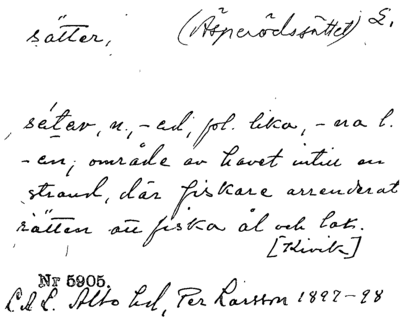 sätter, (Äsperödssättet) L.
sétər, n., -əd, pl. lika, -na l.
-en; område av havet intill en
strand, där fiskare arrenderat
rätten att fiska ål och lax.
[Kivik]
Nr 5905.
L.A.L. Albo hd, Per Larsson 1897-98